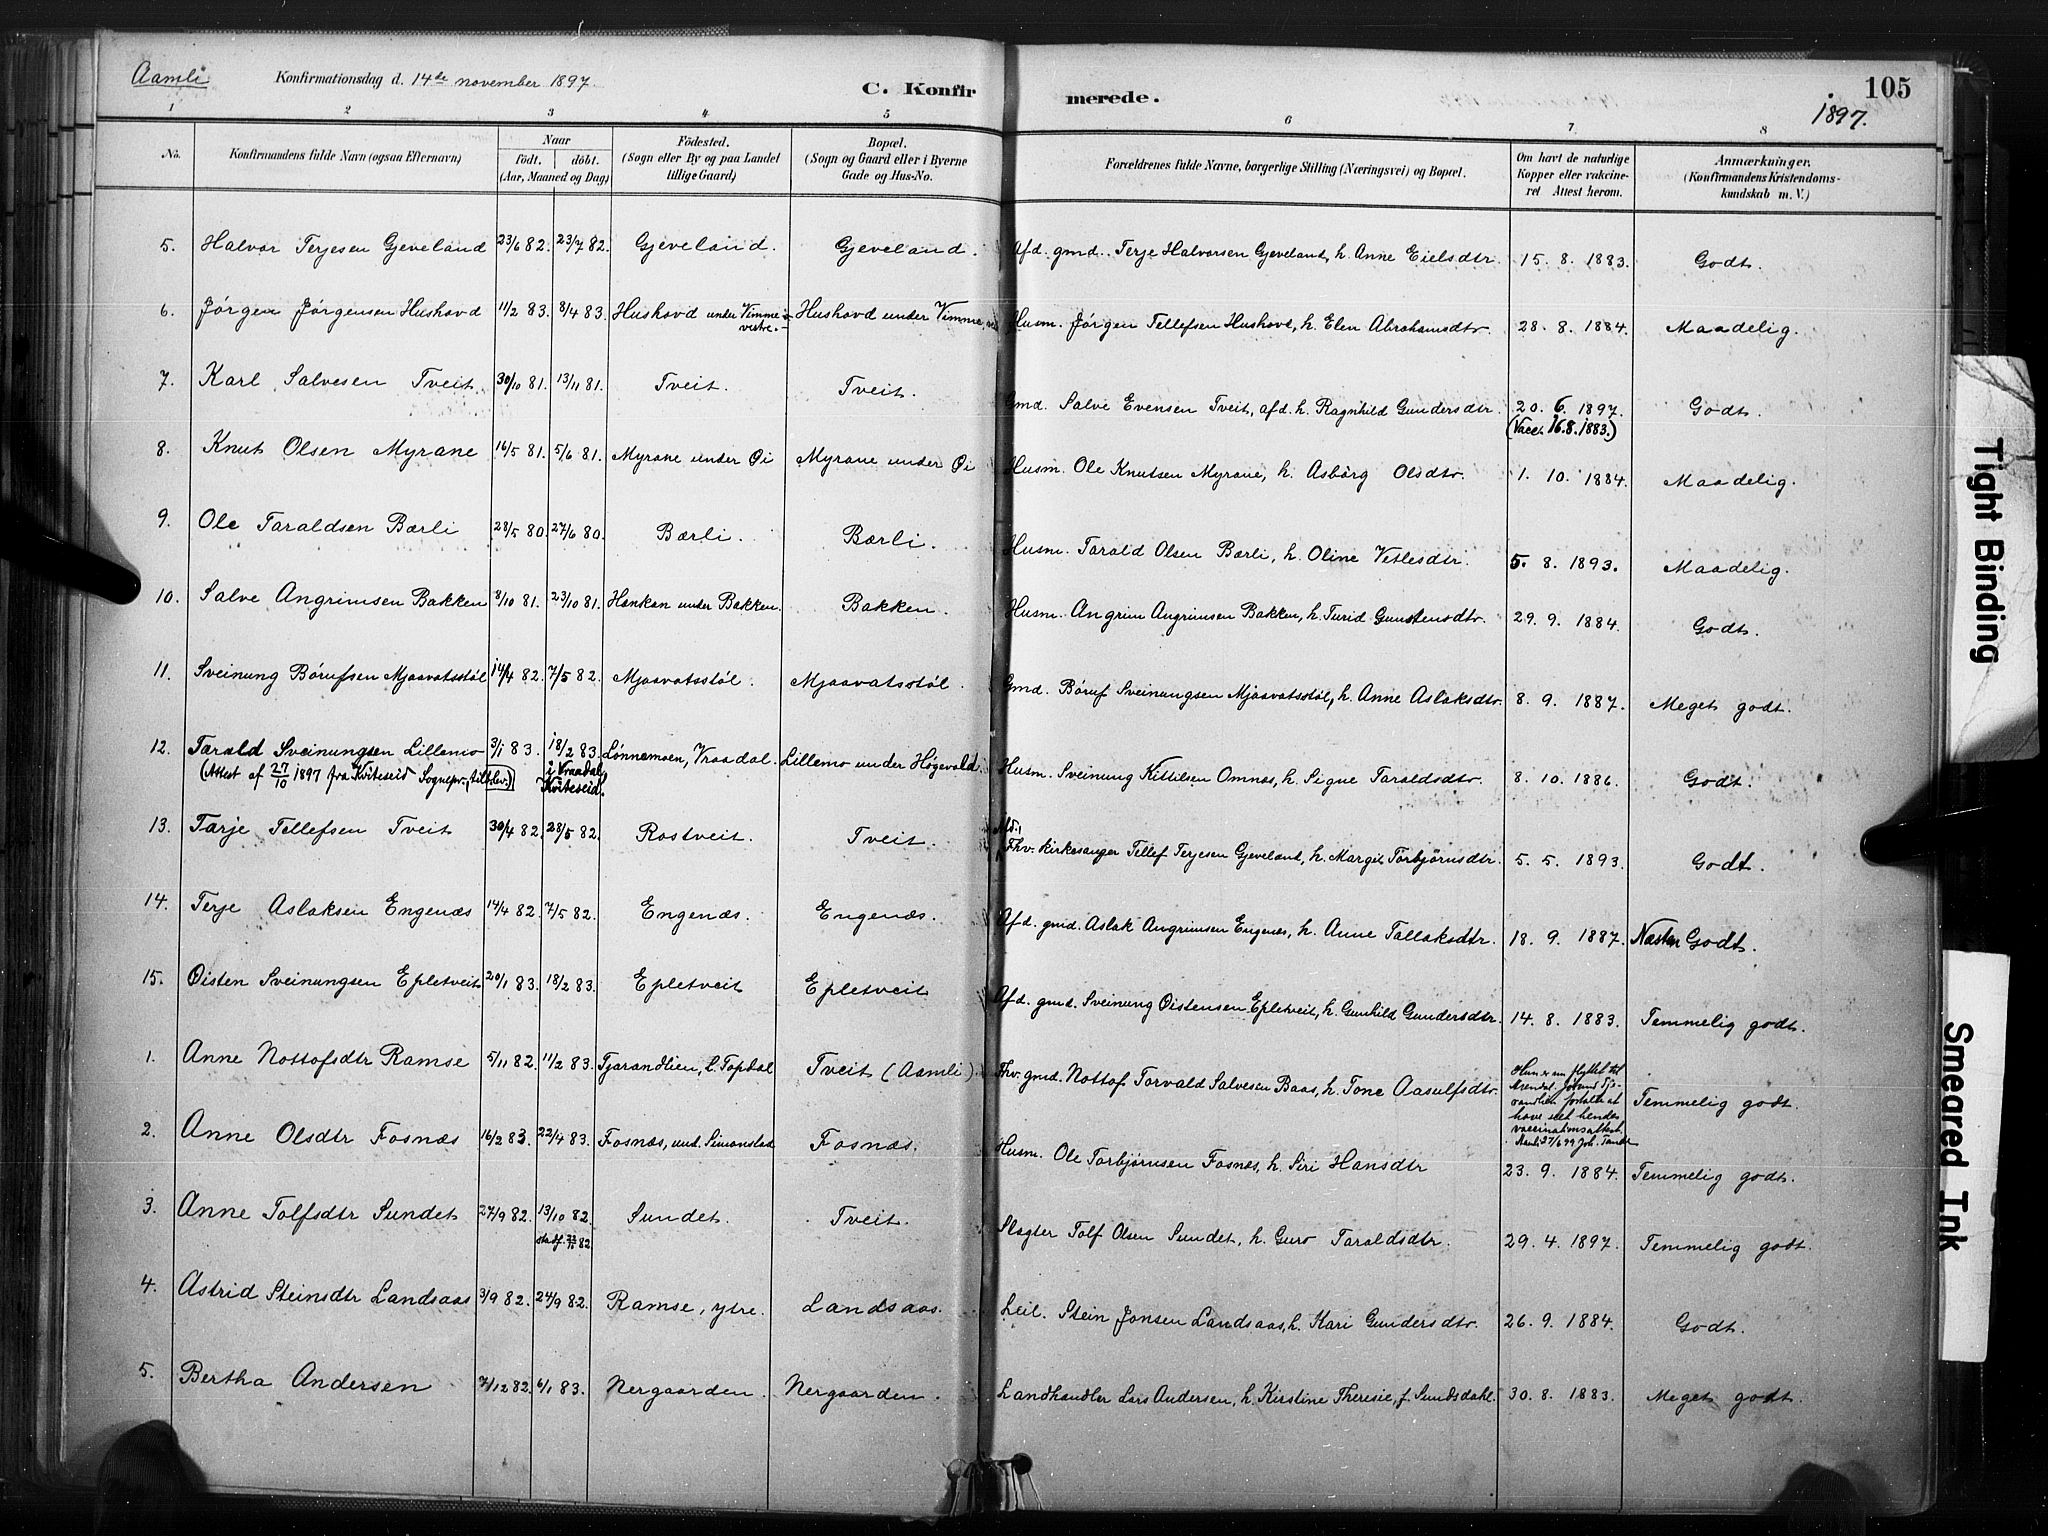 Aamli Konfirmationsdag d. 14de november 1897. C. Konfir merede. 105
1897.
1 2 3 4 5 6 7 8
No. Konfirmandens fulde Navn (ogsaa Efternavn) Naar født. døbt. (Aar, Maaned og Dag) Fødested. (Sogn eller By og paa Landet tillige Gaard) Bopæl. (Sogn og Gaard eller i Byerne Gade og Hus-No. Forældrenes fulde Navne, borgerlige Stilling (Næringsvei) og Bopæl. Om havt de naturlige Kopper eller vakcineret Attest herom. Anmærkninger. (Konfirmandens Kristendomskundskab m. V.)
5. Halvor Terjesen Gjeveland 23/6 82. 23/7 82. Gjeveland. Gjeveland. Afd. gmd. Terje Halvorsen Gjeveland, h. Anne Eielsdtr. 15. 8. 1883. Godt.
6. Jørgen Jørgensen Hushovd 11/2 83. 8/4 83. Hushovd under Vimme vestre. Hushovd under Vimme, Husm. Jørgen Tellefsen Hushovd, h. Elen Abrahamsdtr. 28. 8. 1884. Maadelig.
7. Karl Salvesen Tveit. 30/10 81. 13/11 81. Tveit. Tveit. Gmd. Salve Evensen Tveit, afd. h. Ragnhild Gundersdtr. 20. 6. 1897. Godt.
(Vacc. 16.8.1883.)
8. Knut Olsen Myrane 16/5 81. 5/6 81. Myrane under Øi Myrane under Øi Husm. Ole Knutsen Myrane, h. Asbørg Olsdtr. 1. 10. 1884. Maadelig.
9. Ole Taraldsen Bærli 28/5 80. 27/6 80. Bærli. Bærli. Husm. Tarald Olsen Bærli, h. Oline Vetlesdtr. 5. 8. 1893. Maadelig.
10. Salve Angrimsen Bakken 8/10 81. 23/10 81. Hankan under Bakken. Bakken. Husm. Angrim Angrimsen Bakken, h. Turid Gunstensdtr. 29. 9. 1884. Godt.
11. Sveinung Børufsen Mjaavatsstøl 14/4 82. 7/5 82. Mjaavatsstøl. Mjaavatsstøl. Gmd. Børuf Sveinungsen Mjaavatsstøl, h. Anne Aslaksdtr. 8. 9. 1887. Meget godt.
12. Tarald Sveinungsen Lillemo 3/1 83. 18/2 83. Lønnemoen, Vraadal. Lillemo under Høgevold. Husm. Sveinung Kittilsen Omnæs, h. Signe Taraldsdtr. 8. 10. 1886. Godt.
(Attest af 27/10 1897 fra Kviteseid Sognepr. tilblev.) i Vraadal, Kviteseid.
13. Tarje Tellefsen Tveit 30/4 82. 28/5 82. Rostveit. Tveit. Afd. Fhv. kirkesanger Tellef Terjesen Gjeveland, h. Margit Torbjørnsdtr. 5. 5. 1893. Godt.
14. Terje Aslaksen Engenæs 14/4 82. 7/5 82. Engenæs. Engenæs. Afd. gmd. Aslak Angrimsen Engenæs, h. Anne Tallaksdtr. 18. 9. 1887. Næsten Godt.
15. Øisten Sveinungsen Epletveit 20/1 83. 18/2 83. Epletveit Epletveit Afd. gmd. Sveinung Øistensen Epletveit, h. Gunhild Gundersdtr. 14. 8. 1883. Temmelig godt.
1. Anne Nottofsdtr Ramse 5/11 82. 11/2 83. Tjarandlien, Topdal Tveit (Aamli). Fhv. gmd. Nottof Torvald Salvesen Baas, h. Tone Aasulfsdtr. Hun er nu flyttet til Arendal. have set hendes vaccinationsattest. 27/6 99 Joh. Temmelig godt.
2. Anne Olsdtr Fosnæs 16/2 83. 22/4 83. Fosnæs, und. Simonstad Fosnæs. Husm. Ole Torbjørnsen Fosnæs, h. Siri Hansdtr 23. 9. 1884. Temmelig godt.
3. Anne Tolfsdtr Sundet 27/9 82. 13/10 82. Sundet. Tveit. Slagter Tolf Olsen Sundet, h. Guro Taraldsdtr. 29. 4. 1897. Temmelig godt.
4. Astrid Steinsdtr Landsaas 3/9 82. 24/9 82. Ramse, ytre. Landsaas. Leil. Stein Jonsen Landsaas, h. Kari Gundersdtr. 26. 9. 1884. Godt.
5. Bertha Andersen 7/12 82. 6/1 83. Nergaarden. Nergaarden. Landhandler Lars Andersen, h. Kirstine Theresie, f. Sundsdahl. 30. 8. 1883. Meget godt.
Tight Binding
Smeared Ink